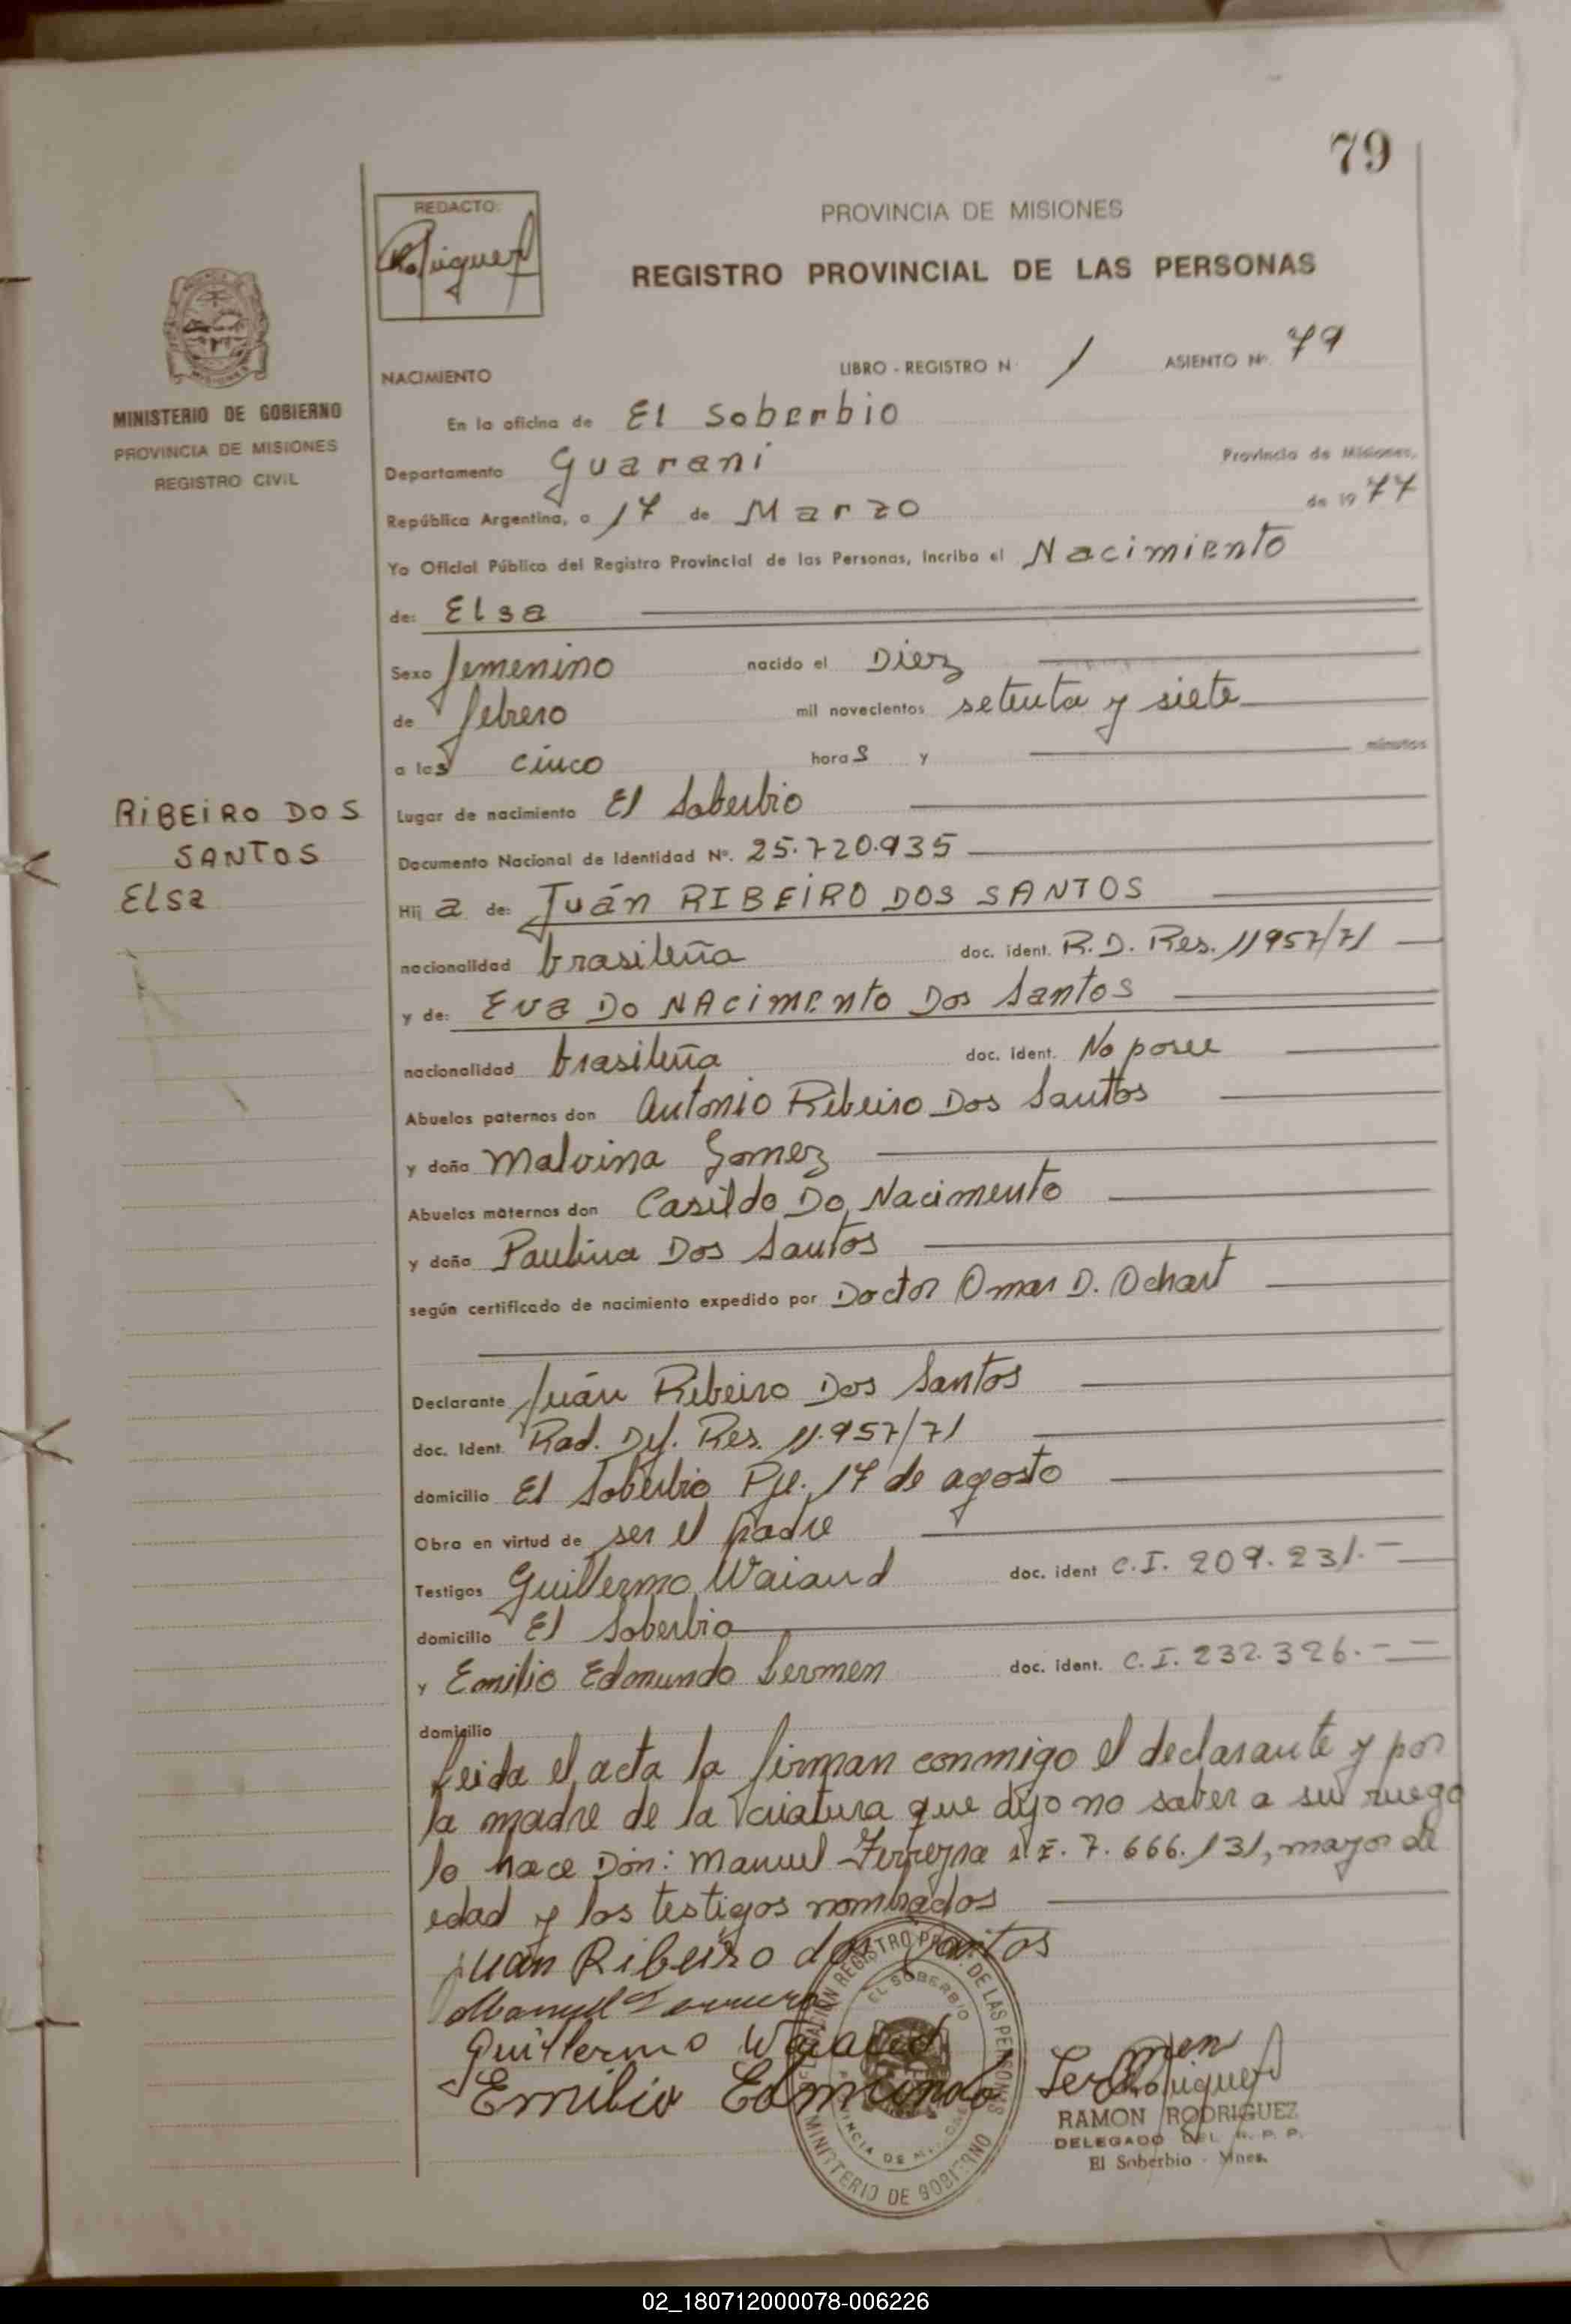 79
REDACTO:
PROVINCIA DE MISIONES
REGISTRO PROVINCIAL DE LAS PERSONAS
MINISTERIO DE GOBIERNO
PROVINCIA DE MISIONES
REGISTRO CIVIL
NACIMIENTO LIBRO - REGISTRO N 1 ASIENTO Nº. 79
En la oficina de El Soberbio
Departamento Guarani Provincia de Misiones,
República Argentina, a 17 de Marzo de 1977
Yo Oficial Público del Registro Provincial de las Personas, incribo el Nacimiento
de: Elsa
Sexo femenino nacido el Diez
de febrero mil novecientos setenta y siete
a las cinco horas y minutos
RIBEIRO DOS
SANTOS
Elsa
Lugar de nacimiento El Soberbio
Documento Nacional de Identidad Nº. 25.720.935
Hij a de: Juán RIBEIRO DOS SANTOS
nacionalidad brasileña doc. ident. R.D. Res. 11957/71
y de: Eva Do NAcimento Dos Santos
nacionalidad brasileña doc. ident. No posee
Abuelos paternos don Antonio Ribeiro Dos Santos
y doña Malvina Gomez
Abuelos maternos don Casildo Do Nacimento
y doña Paulina Dos Santos
según certificado de nacimiento expedido por Doctor Omar D. Ochart
Declarante Juán Ribeiro Dos Santos
doc. Ident. Rad. Def. Res. 11.957/71
domicilio El Soberbio Pje. 17 de agosto
Obra en virtud de ser el padre
Testigos Guillermo Waiand doc. ident C.I. 209.231.-
domicilio El Soberbio
y Emilio Edmundo Sermen doc. ident. C.I. 232.326.--
domicilio
Leida el acta la firman conmigo el declarante y por
la madre de la criatura que dijo no saber a su ruego
lo hace Don: Manuel Ferreyra 7.666.131, mayor de
edad y los testigos nombrados
Juan Ribeiro dos Santos
Manuel
Guillermo Waiand
Emilio Edmundo Sermen
REGISTRO PROV. DE LAS PERSONAS
EL SOBERBIO
MINISTERIO DE GOBIERNO
RAMON RODRIGUEZ
DELEGADO DEL R. P. P.
El Soberbio - Mnes.
02_180712000078-006226